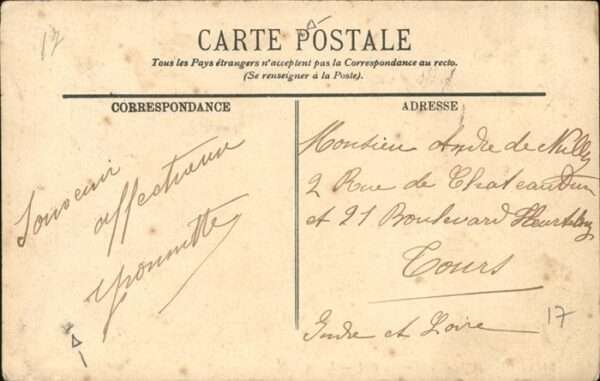 17
CARTE POSTALE
Tous les Pays étrangers n'acceptent pas la Correspondance au recto.
(Se renseigner à la Poste).
CORRESPONDANCE
Souvenir
affectueux
Yvonnette
ADRESSE
Monsieur Andre de Nully
2 Rue de Chateaudun
et 21 Boulevard Heurteloup
Tours
Indre et Loire
17